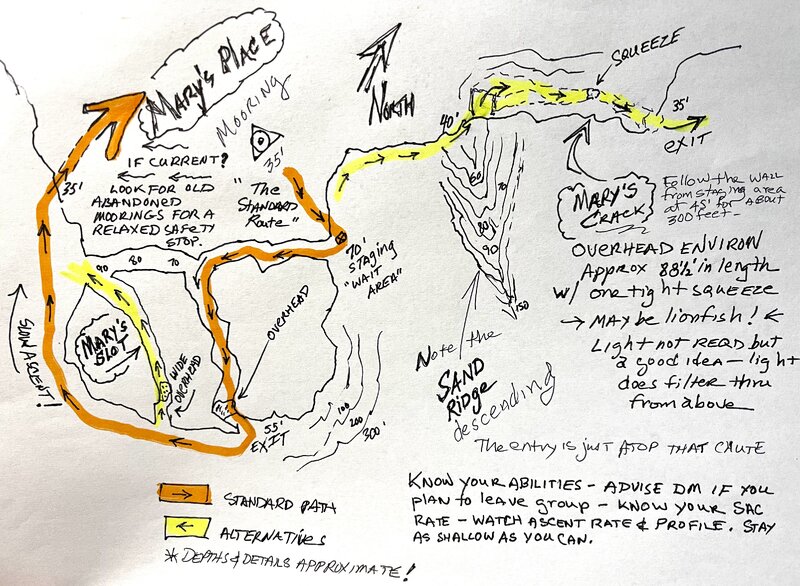 MARY'S PLACE
MOORING
35'
NORTH
SQUEEZE
40'
35'
EXIT
IF CURRENT?
LOOK FOR OLD
ABANDONED
MOORINGS FOR A
RELAXED SAFETY
STOP.
35'
"The
STANDARD
Route"
70'
STAGING
"WAIT
AREA"
MARY'S
CRACK
Follow the WALL
from STAGING AREA
AT 45' for ABOUT
300 feet-
60
70
80
90
150
OVERHEAD ENVIRON
Approx 88½' in length
w/ one tight SQUEEZE
MAY be lionfish!
Light not REQD but
a good idea - light
does filter thru
from above
90
80
70
OVERHEAD
MARY'S
SLOT
WIDE
OVERHEAD
SLOW ASCENT!
55'
EXIT
100
200
300'
Note the
SAND
Ridge
descending
The entry is just ATOP THAT CHUTE
STANDARD PATH
ALTERNATIVES
* DEPTHS & DETAILS APPROXIMATE!
KNOW YOUR ABILITIES - ADVISE DM IF YOU
PLAN to LEAVE GROUP - KNOW YOUR SAC
RATE - WATCH ASCENT RATE & PROFILE. STAY
AS SHALLOW AS YOU CAN.